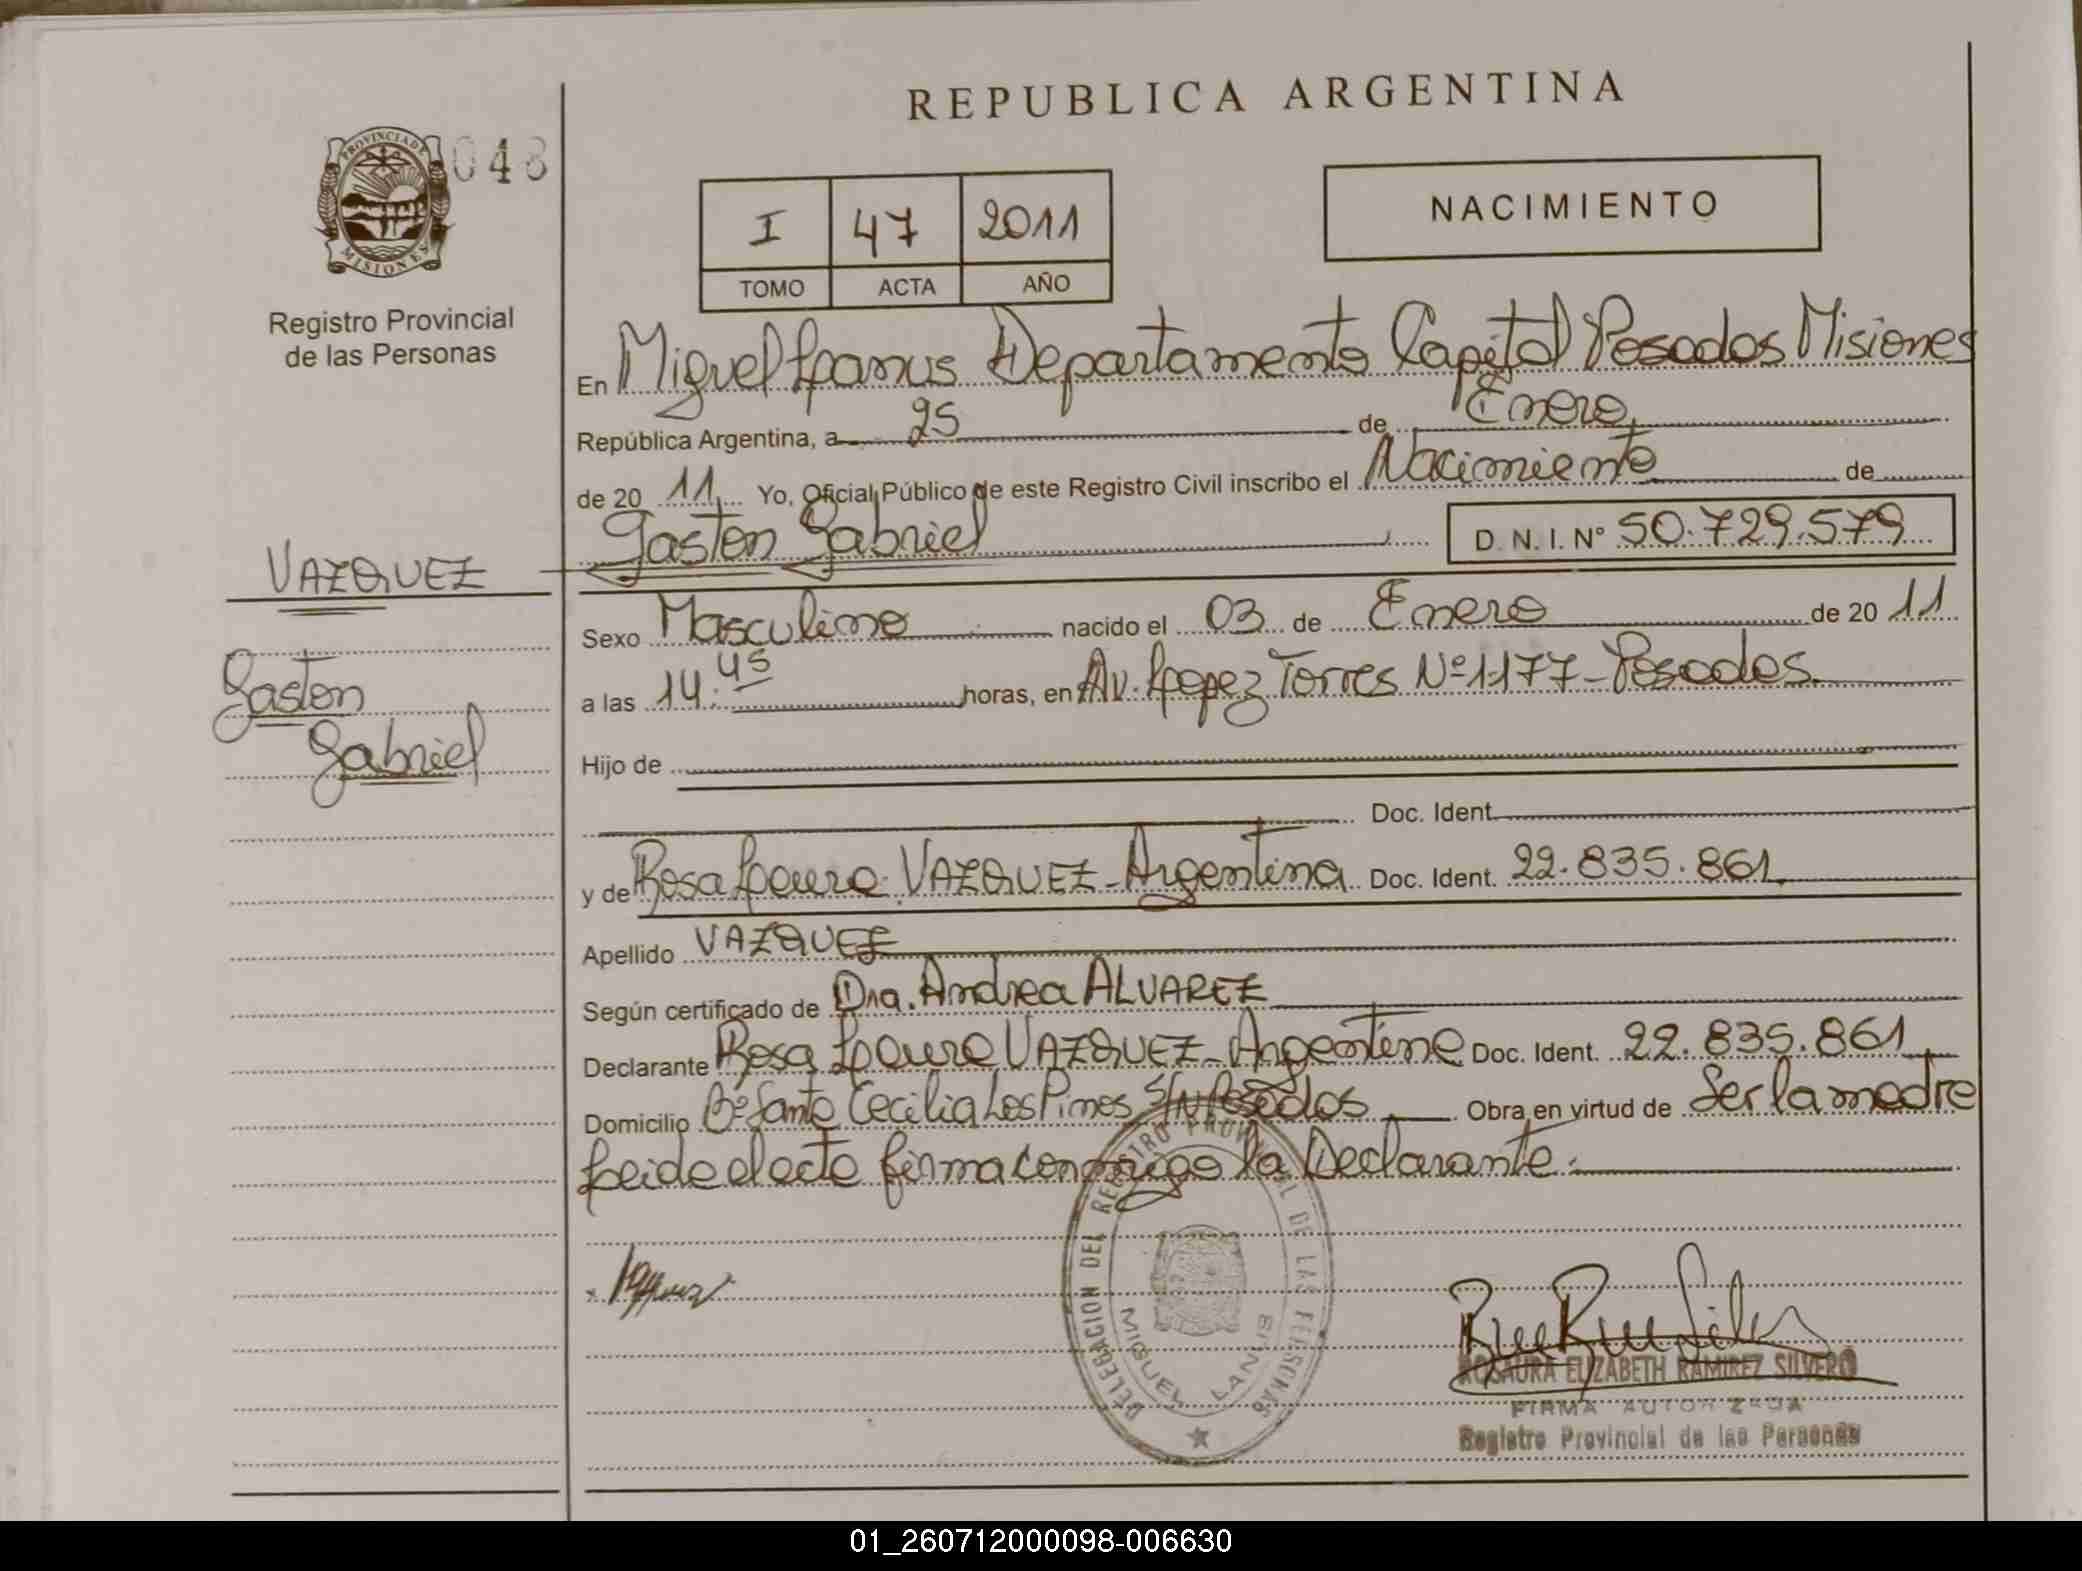 REPUBLICA ARGENTINA
PROVINCIA DE MISIONES
048
Registro Provincial
de las Personas
NACIMIENTO
I 47 2011
TOMO ACTA AÑO
En Miguel Lanus Departamento Capital Posadas Misiones
República Argentina, a 25 de Enero
de 20 11 Yo, Oficial Público de este Registro Civil inscribo el Nacimiento de
Gaston Gabriel D.N.I. Nº 50.729.579
VAZQUEZ
Gaston
Gabriel
Sexo Masculino nacido el 03 de Enero de 20 11
a las 14.45 horas, en Av. Lopez Torres Nº 1177 - Posadas
Hijo de
Doc. Ident.
y de Rosa Laura VAZQUEZ - Argentina Doc. Ident. 22.835.861
Apellido VAZQUEZ
Según certificado de Dra. Andrea ALVAREZ
Declarante Rosa Laura VAZQUEZ - Argentina Doc. Ident. 22.835.861
Domicilio Bº Santa Cecilia Los Pinos S/N Posadas Obra en virtud de Ser la madre
Leida el acta firma conmigo la Declarante.
DELEGACION DEL REGISTRO PROVINCIAL DE LAS PERSONAS
MIGUEL LANUS
ROSAURA ELIZABETH RAMIREZ SILVERO
FIRMA AUTORIZADA
Registro Provincial de las Personas
01_260712000098-006630